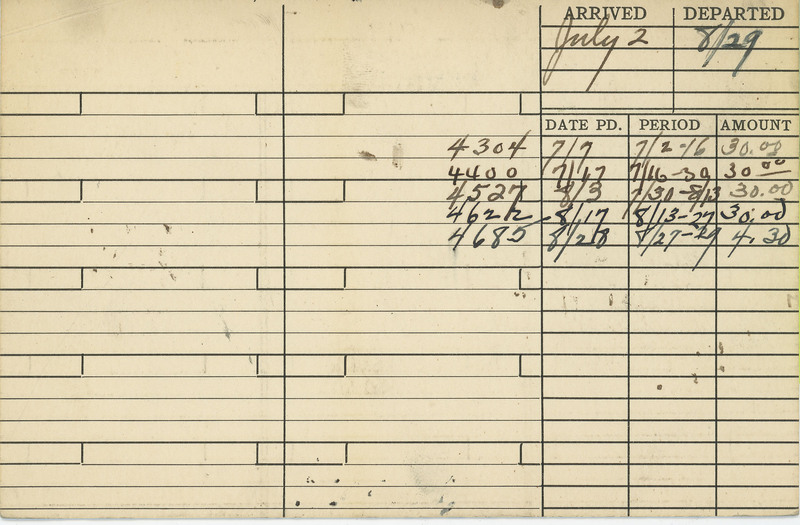 ARRIVED DEPARTED
July 2 8/29
DATE PD. PERIOD AMOUNT
4304 7/7 7/2-16 30.00
4400 7/17 7/16-30 30.00
4527 8/3 7/30-8/13 30.00
4622 8/17 8/13-27 30.00
4685 8/28 8/27-29 4.30